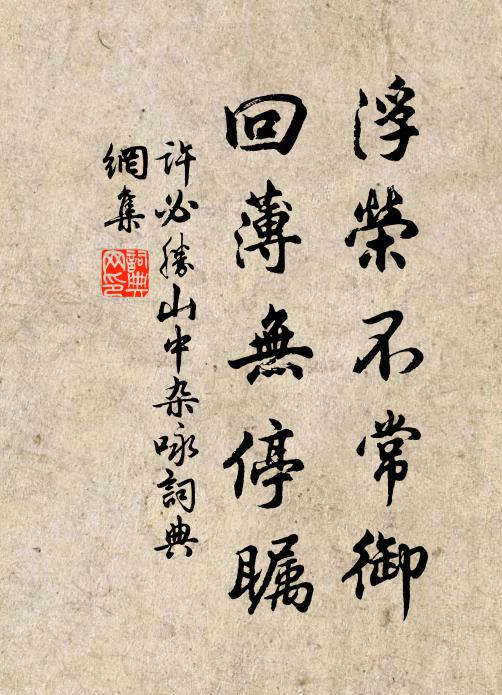 浮榮不常御
回薄無停瞩
许必勝山中杂咏詞典
網集
詞典
网印